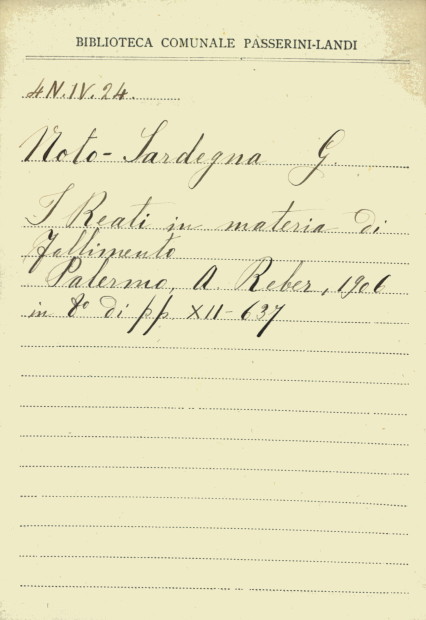 BIBLIOTECA COMUNALE PASSERINI-LANDI
4N.IV.24.
Noto-Sardegna G.
I Reati in materia di
fallimento
Palermo, A. Reber, 1906
in 8º di pp XII-637